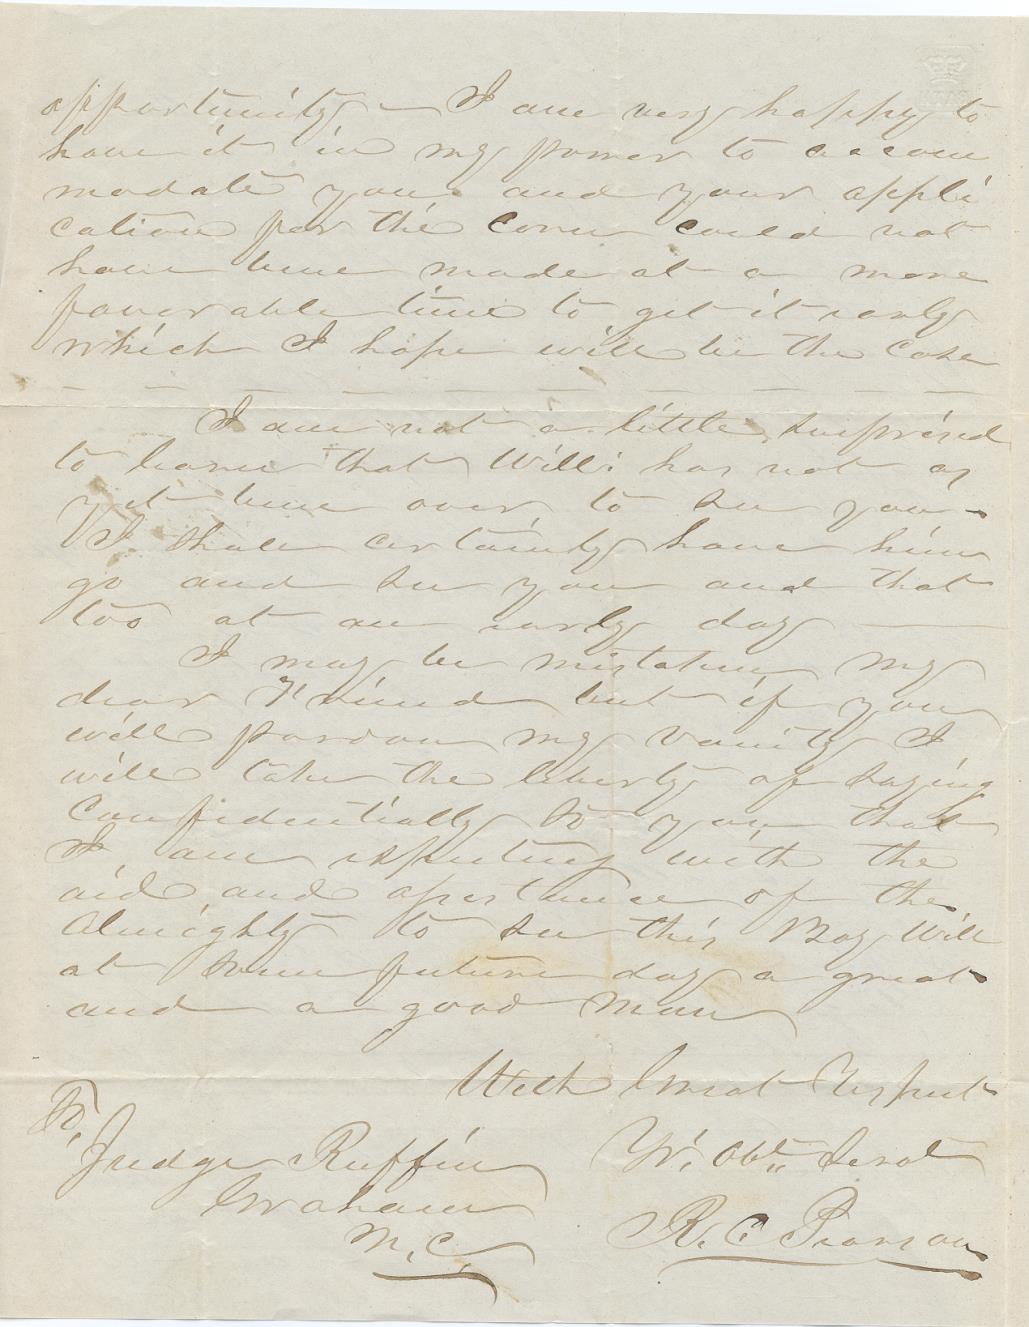 opportunity — I am very happy to
have it in my power to accom
modate you and your appli
cation for the Corn could not
have been made at a more
favorable time to get it early
which I hope will be the case
I am not a little surprised
to learn that Will: has not as
yet been over to see you.
I shall certainly have him
go and see you and that
too at an early day —
I may be mistaken my
dear Friend but if you
will pardon my vanity I
will take the liberty of saying
Confidentially to you that
I am expecting with the
aid and assistance of the
Almighty to see this Boy Will
at some future day a great
and a good man
With Great Respect
To,
Judge Ruffin Yr. Obt. Servt
Graham R. C. Pearson
N. C.